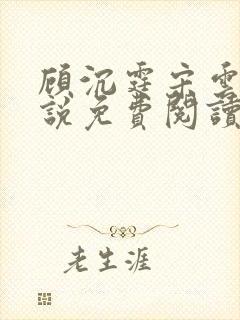 顾沉霆宋云
說免費閱讀
老生涯